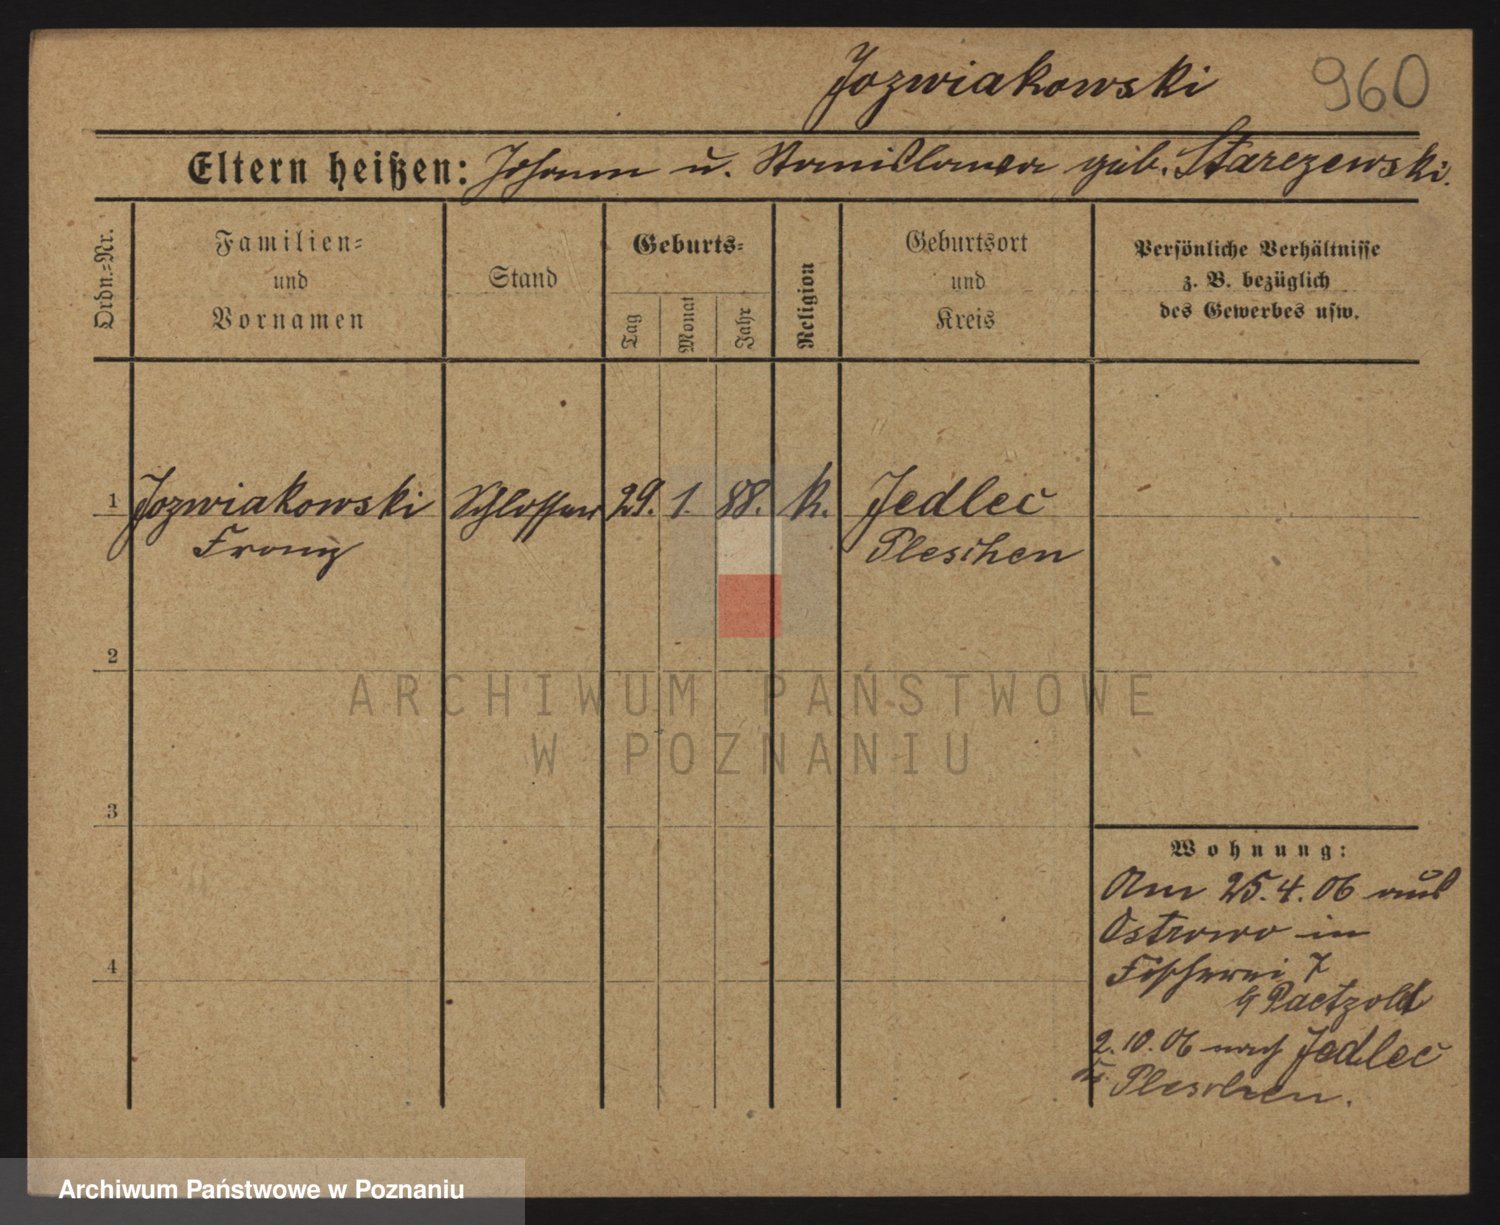 Jozwiakowski 960
Eltern heißen: Johann u. Stanislawa geb. Starczewski.
Ordn.-Nr.
Familien-
und
Vornamen
Stand
Geburts-
Tag
Monat
Jahr
Religion
Geburtsort
und
Kreis
Persönliche Verhältnisse
z. B. bezüglich
des Gewerbes usw.
1 Jozwiakowski Schlosser 29. 1. 88. k. Jedlec
Franz Pleschen
2
ARCHIWUM PAŃSTWOWE
W POZNANIU
3
Wohnung:
Am 25.4.06 aus
Ostrowo in
4
Fischerei 7
b/ Paetzold
2.10.06 nach Jedlec
Pleschen.
Archiwum Państwowe w Poznaniu